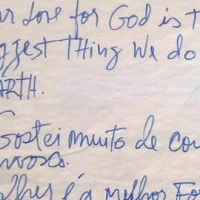 ur Love for God is t
ggest Thing We do
EARTH.
Gostei muito de co
nvosco.
é a melhor For